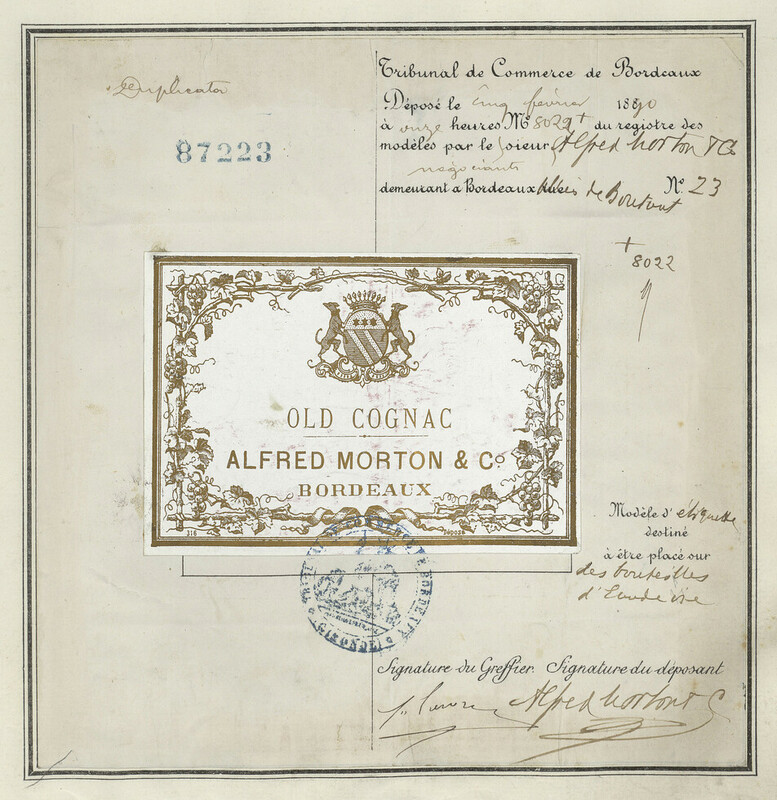 Duplicata
87223
Tribunal de Commerce de Bordeaux
Déposé le cinq février 1890
à onze heures No 8022 + du registre des
modèles par le sieur Alfred Morton & Co
négociants
demeurant à Bordeaux de No 23
+
8022
OLD COGNAC
ALFRED MORTON & Co.
BORDEAUX
316
Modèle d'étiquette
destiné
à être placé sur
des bouteilles
d'eau de vie
TRIBUNAL DE COMMERCE DE BORDEAUX
(GIRONDE)
Signature du Greffier. Signature du déposant
Alfred Morton & C